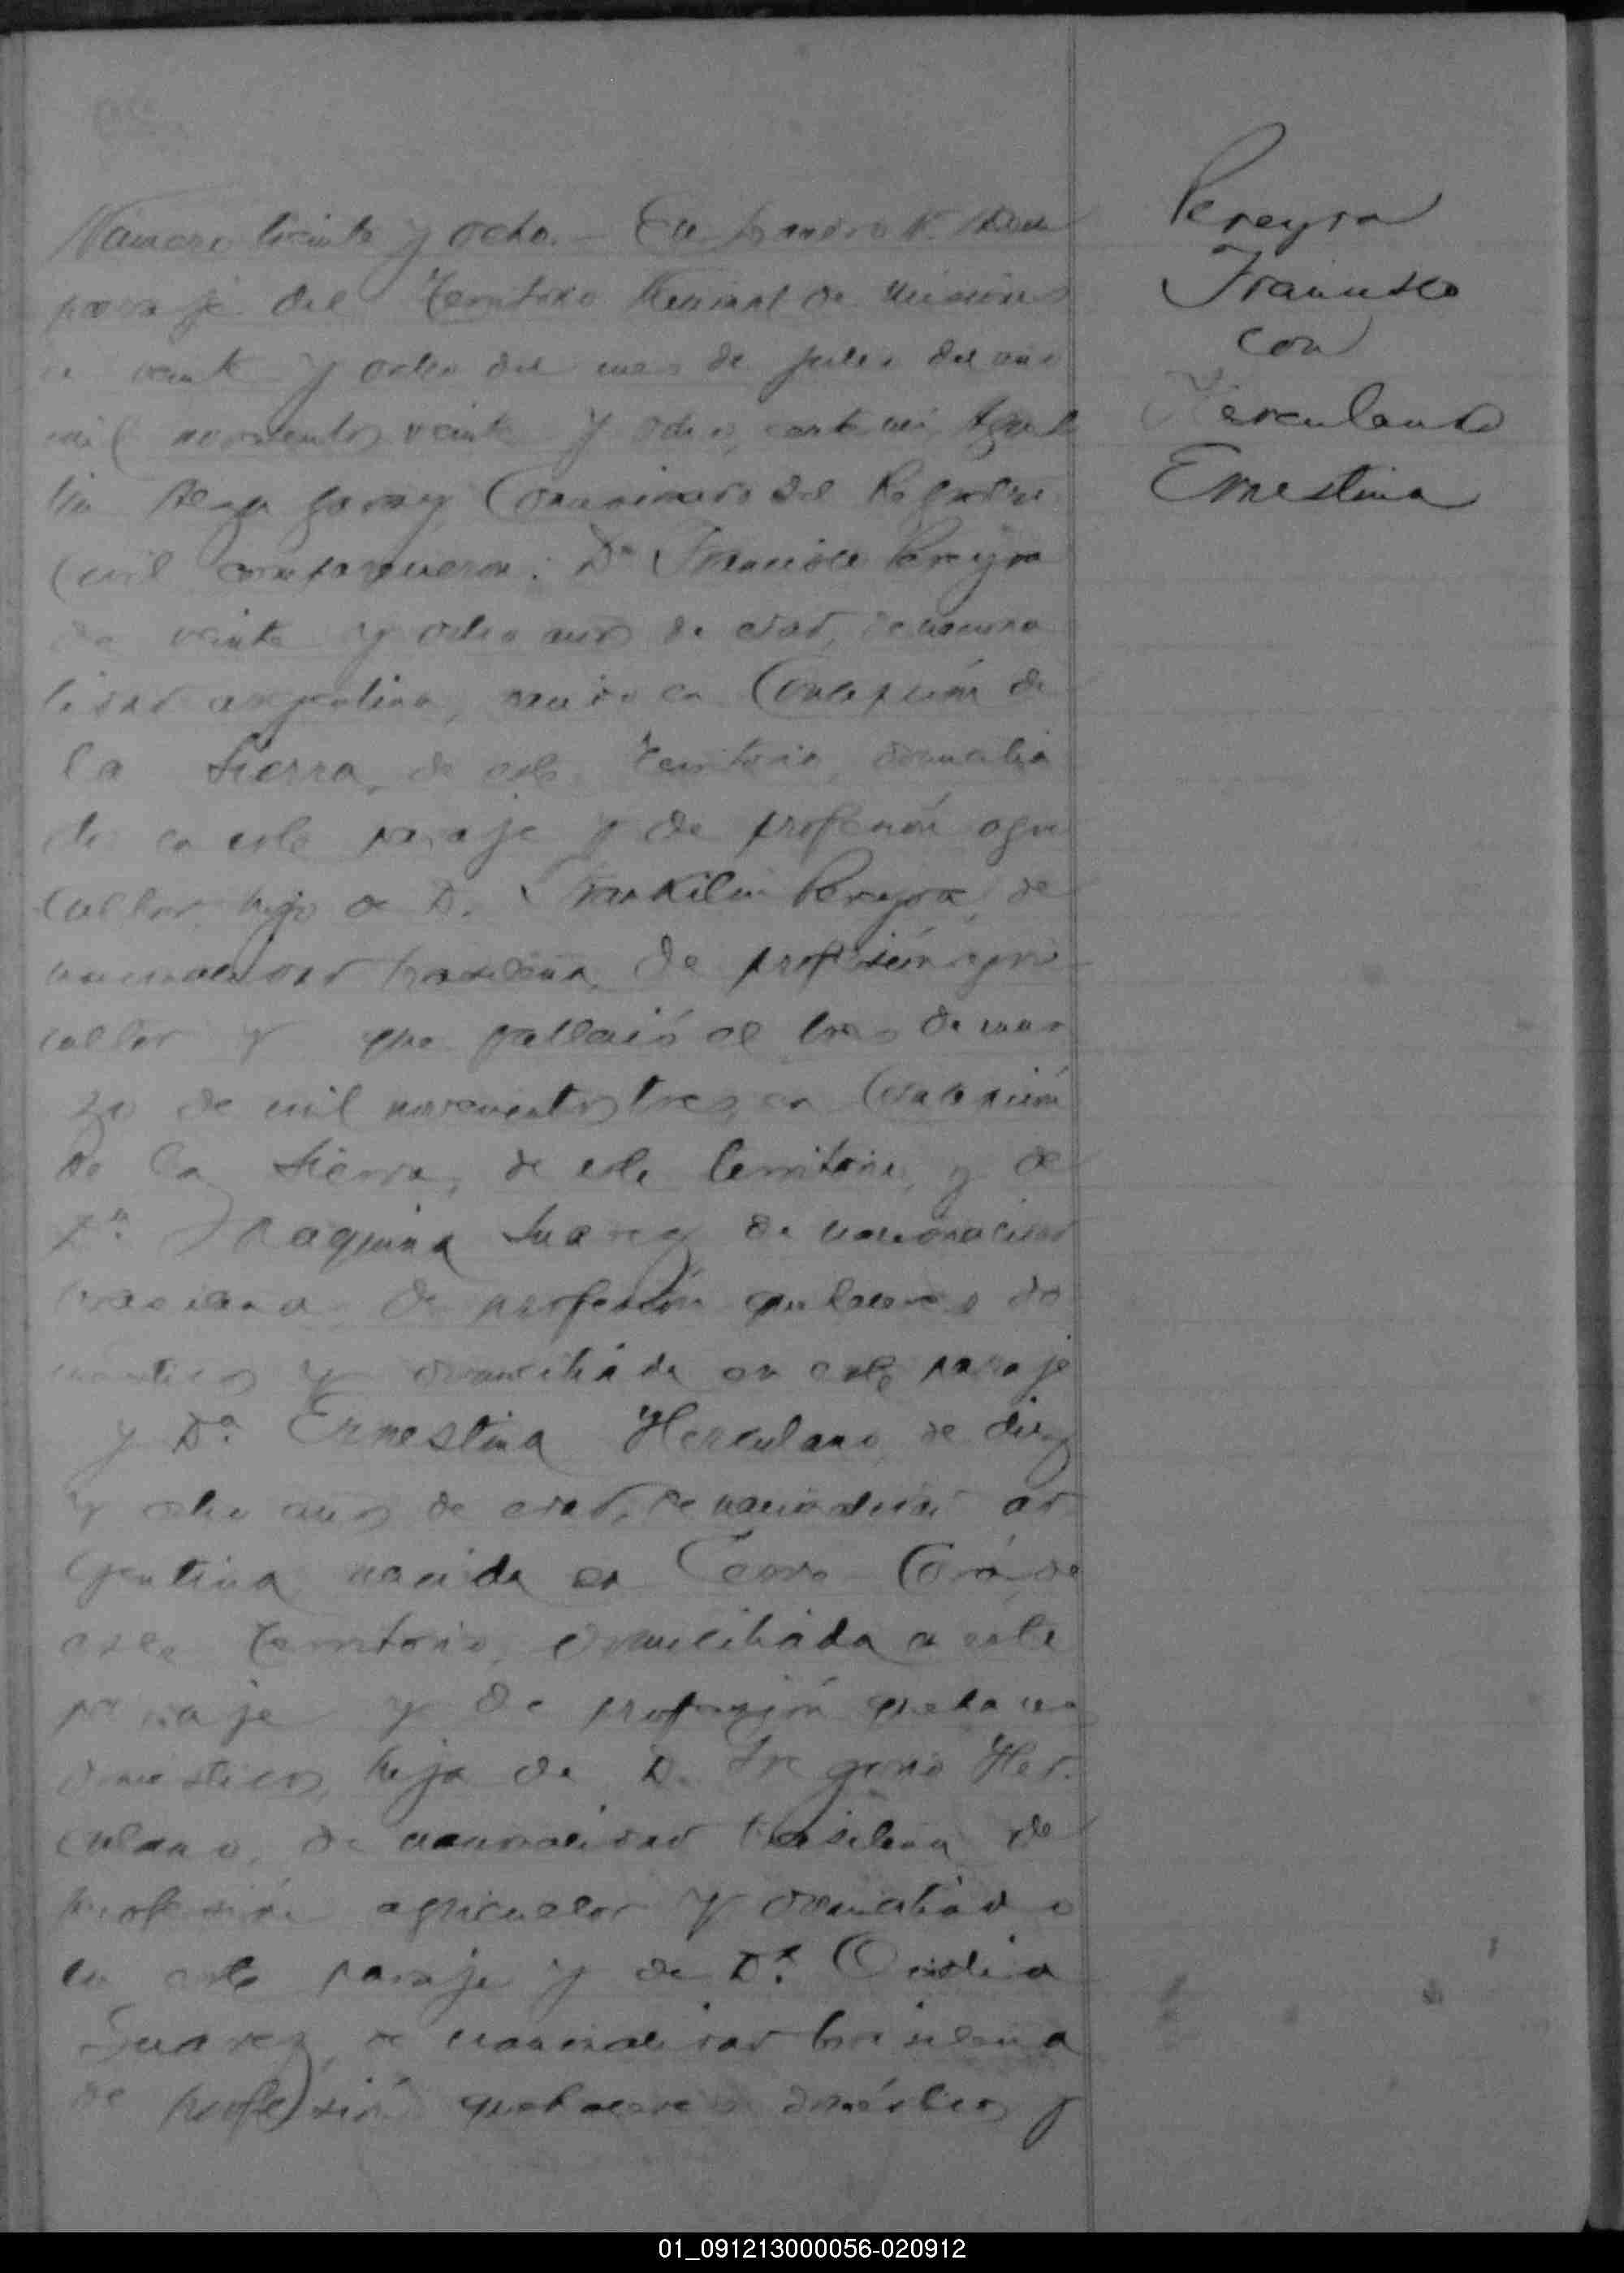 Número treinta y ocho.- En Leandro N. Alem
paraje del Territorio Nacional de Misiones
a veinte y ocho del mes de Julio del año
mil novecientos veinte y ocho, ante mi,
Comisionado del Registro
Civil comparecieron: Dn Francisco Pereyra
de veinte y ocho años de edad, de naciona
lidad argentina, nacido en Concepción de
la Sierra, de este Territorio, domicilia
do en este paraje y de profesión agri
cultor hijo de D. Pereyra, de
nacionalidad brasilena, de profesión agri
cultor y que falleció el tres de mar
zo de mil novecientos tres, en Concepción
de la Sierra, de este territorio, y de
Da. Joaquina Suarez, de nacionalidad
brasilena, de profesión quehaceres do
mesticos y domiciliada en este paraje
y Da. Ernestina Herculano, de diez
y ocho años de edad, de nacionalidad ar
gentina nacida en Cerro Corá, de
este territorio, domiciliada en este
paraje y de profesión quehaceres
domesticos, hija de D. Her-
culano, de nacionalidad brasilena, de
profesión agricultor y domiciliado
en este paraje y de Da.
Suarez, de nacionalidad brasilena
de profesión quehaceres domésticos y
Pereyra
Francisco
con
Herculano
Ernestina
01_091213000056-020912